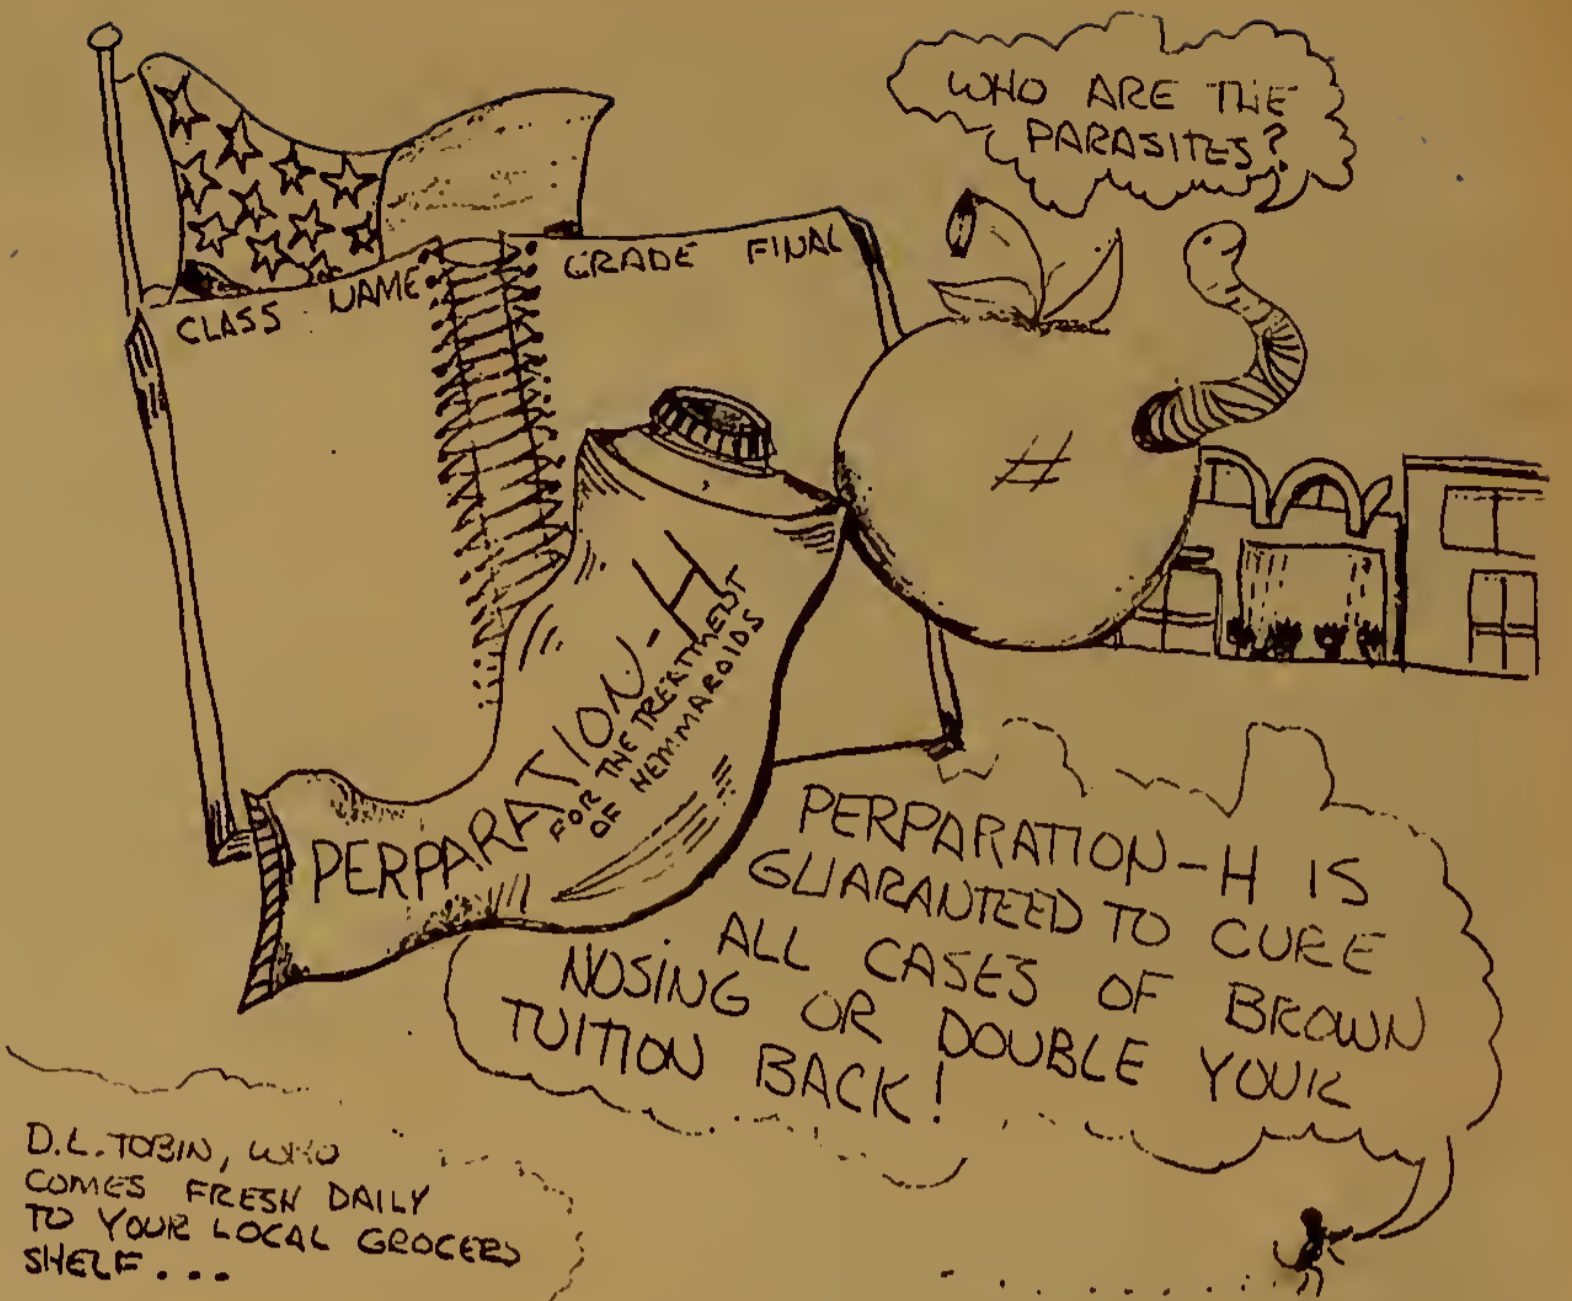 WHO ARE THE
PARASITES?
CLASS NAME
GRADE FINAL
#
PERPARATION-H
FOR THE TREATMENT
OF HEMMAROIDS
PERPARATION-H IS
GUARANTEED TO CURE
ALL CASES OF BROWN
NOSING OR DOUBLE YOUR
TUITION BACK!
D.L. TOBIN, WHO
COMES FRESH DAILY
TO YOUR LOCAL GROCERS
SHELF...